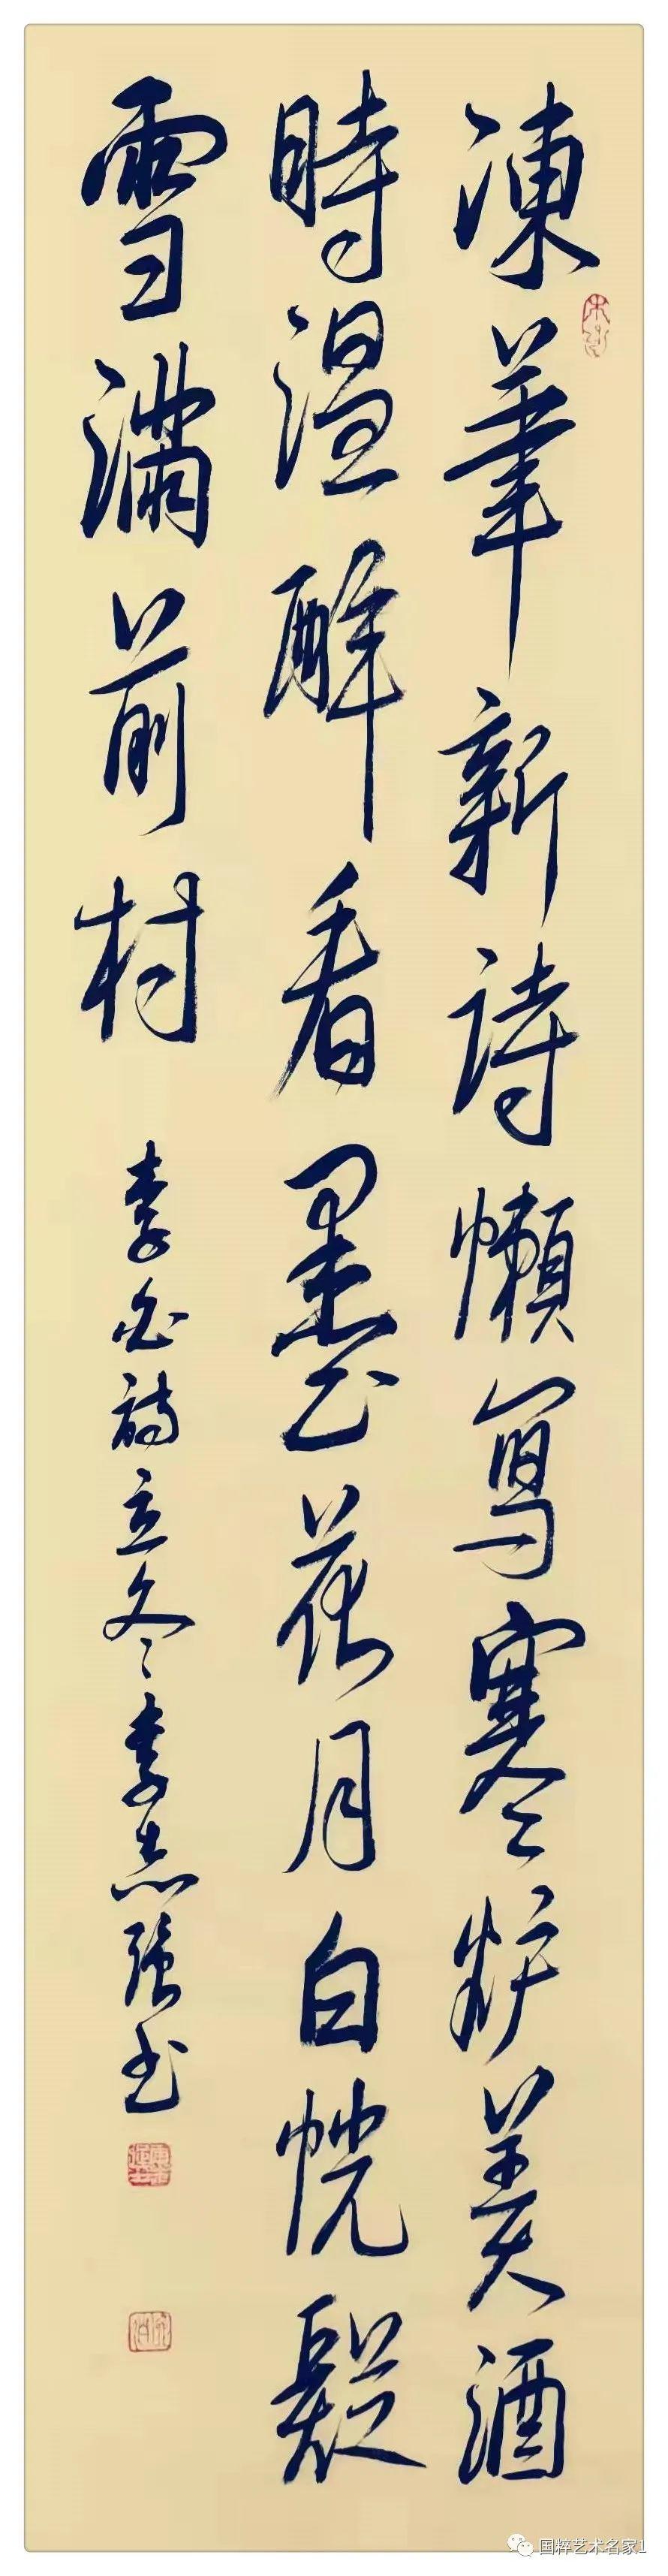 凍筆新詩懶寫寒炉美酒
時温酔看墨花月白恍疑
雪滿前村
李白詩立冬李志强书
国粹艺术名家1